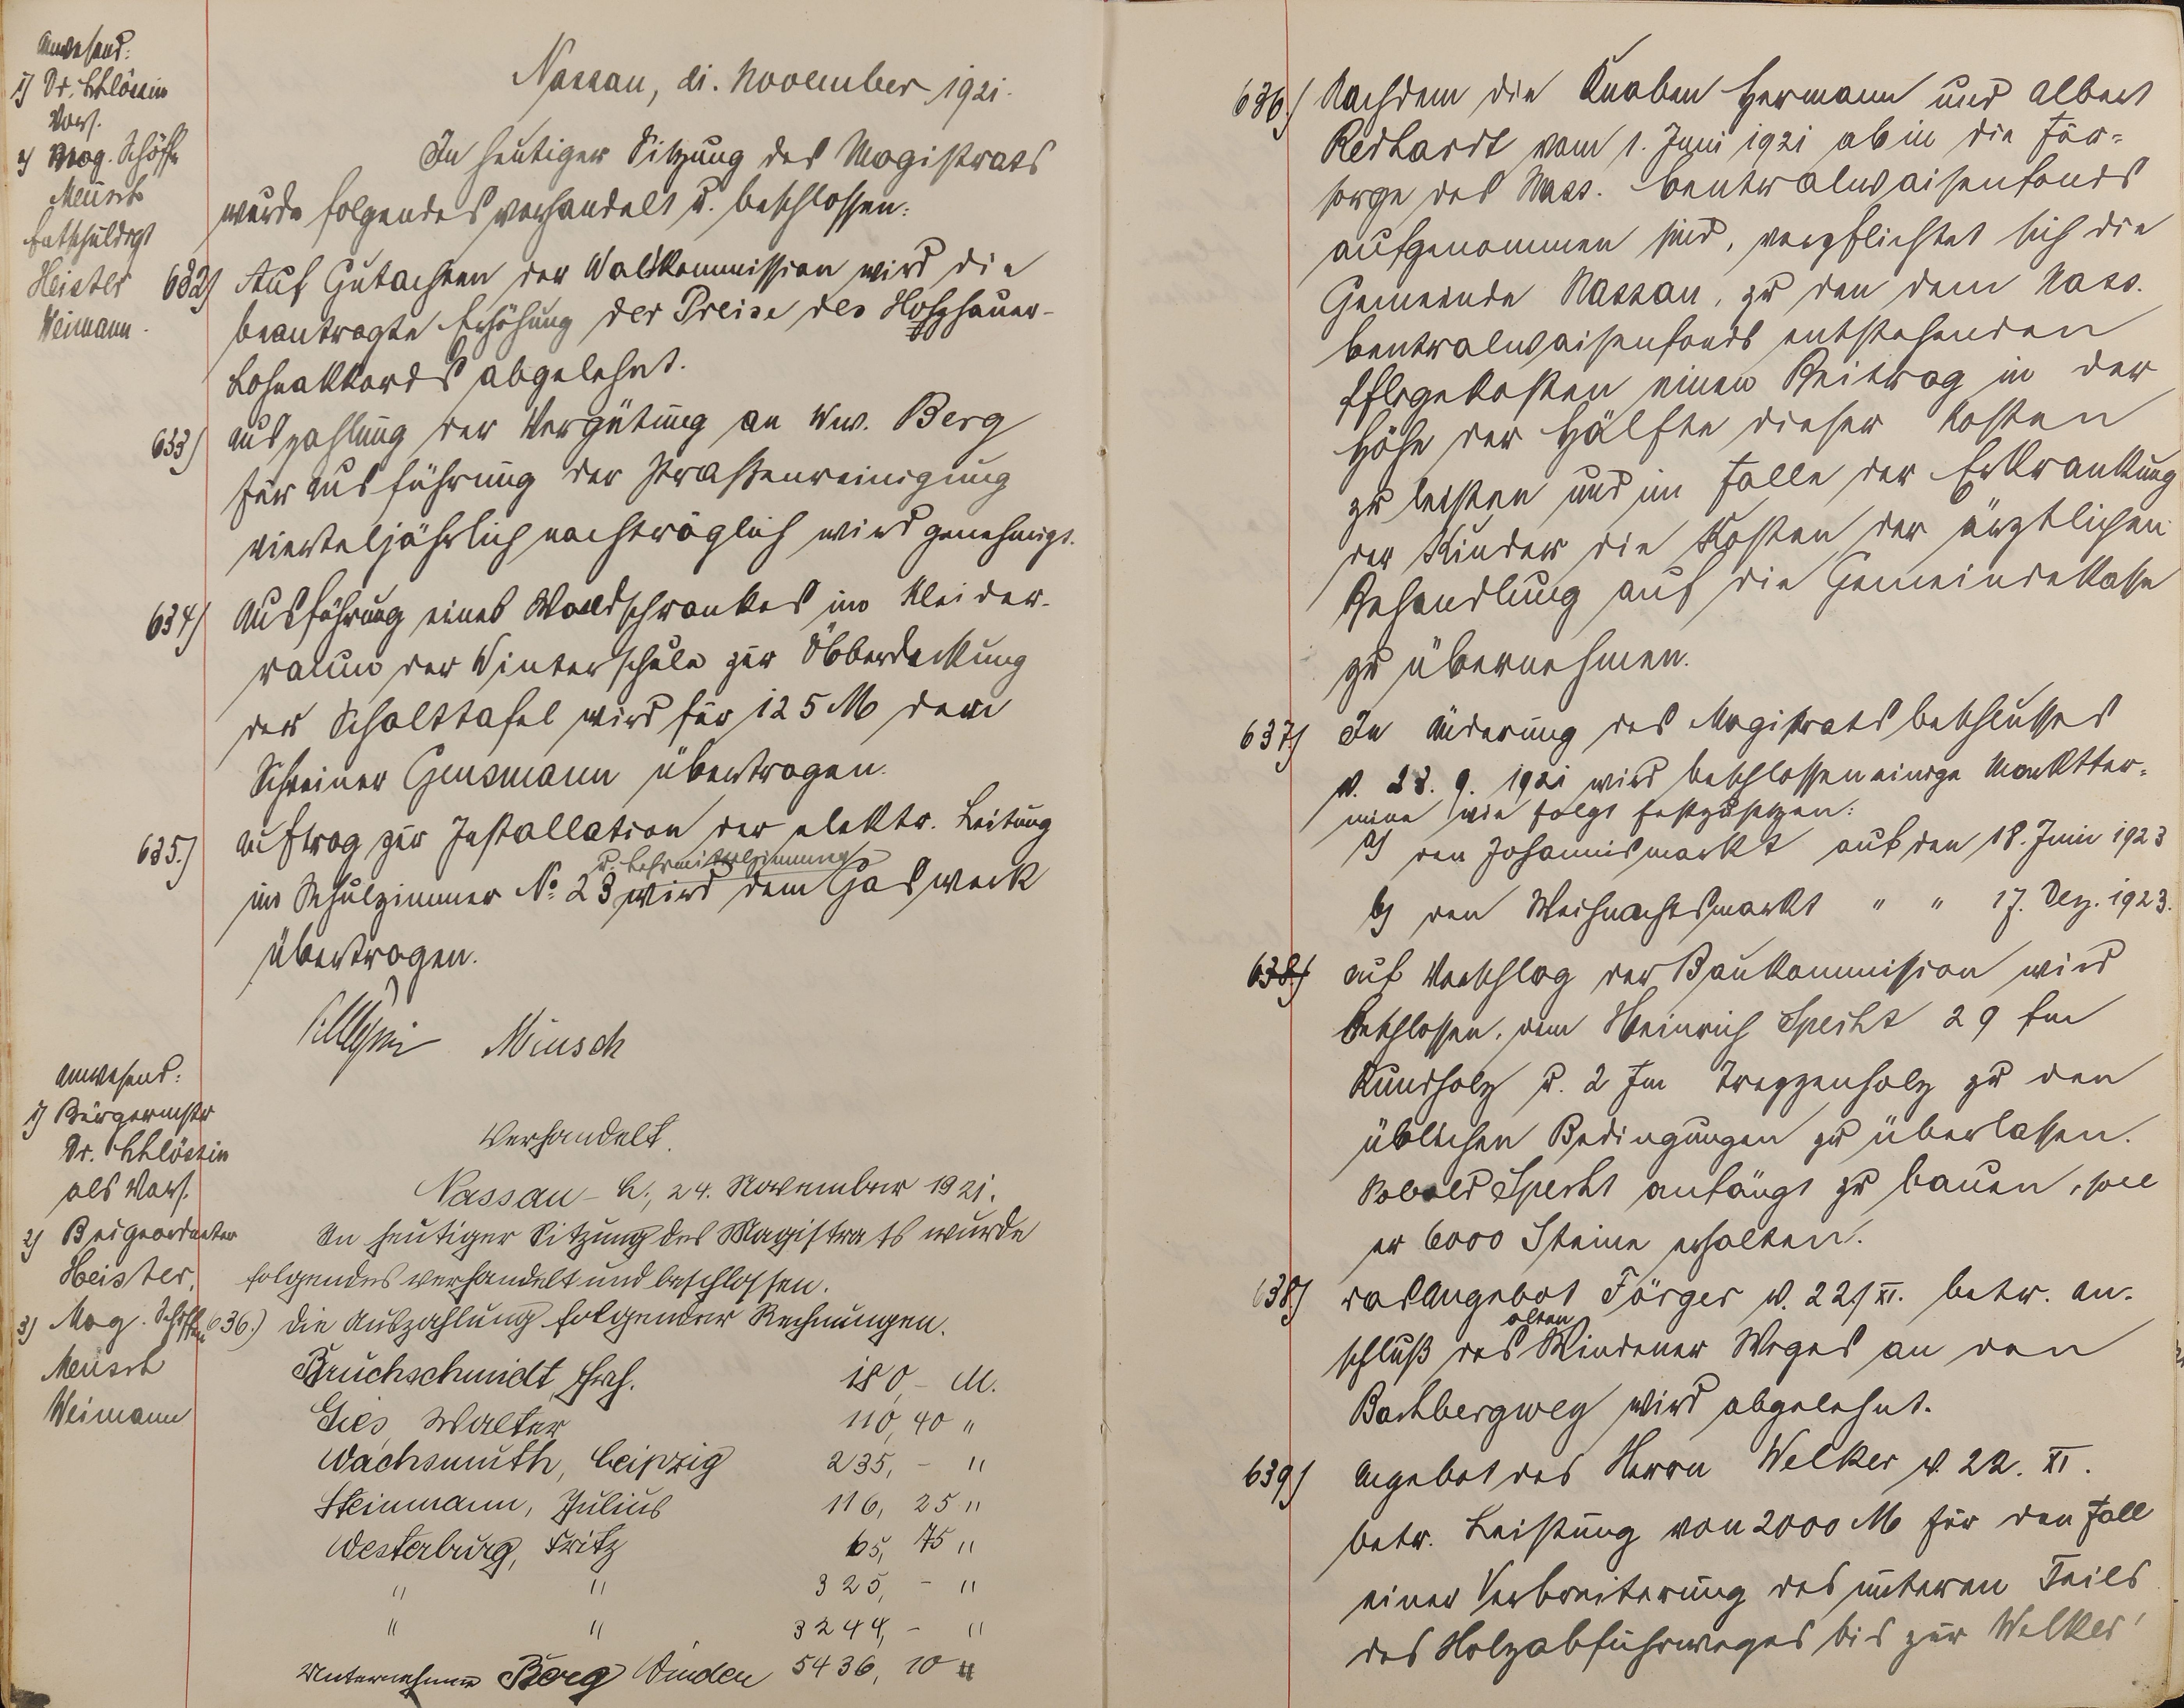 Anwesend:
1) Dr. Schlössin
Vors.
2) Mag. Schöffe
Meusch
Entschuldigt
Heister
Weimann.
Nassau, November 1921.
In heutiger Sitzung des Magistrats
wurde folgendes verhandelt u. beschlossen:
632) Auf Gutachten der Waldkommission wird die
beantragte Erhöhung der Preise des Holzhauer-
Lohnakkords abgelehnt.
633) Auszahlung der Vergütung an Ww. Berg
für Ausführung der Straßenreinigung
vierteljährlich nachträglich wird genehmigt.
634) Ausführung eines Wandschrankes im Kleider-
raum der Winterschule zur Überdeckung
der Schalttafel wird für 125 M dem
Schreiner Gensmann übertragen.
635.) Auftrag zur Installation der elektr. Leitung
u. Lehrmittelzimmer
im Schulzimmer No. 23 wird dem Gaswerk
übertragen.
Meusch
Anwesend:
1) Bürgermstr
Dr. Schlössin
als Vors.
2) Beigeordneter
Heister,
3) Mag. Schöffen
Meusch
Weimann
Verhandelt.
Nassau – L., 24. November 1921.
In heutiger Sitzung des Magistrats wurde
folgendes verhandelt und beschlossen.
636.) Die Auszahlung folgender Rechnungen.
Bruchschmidt, 180, – M.
Gies, Walter 110, 40 "
Wachsmuth, Leipzig 235, – "
Steinmann, Julius 116, 25 "
Westerburg, Fritz 65, 75 "
" " 325, – "
" " 3244, – "
Unternehmer Berg Winden 5436, 10 "
636) Nachdem die Knaben Hermann und Albert
Redhardt vom 1. Juni 1921 ab in die Für-
sorge des Nass. Centralwaisenfonds
aufgenommen sind, verpflichtet sich die
Gemeinde Nassau, zu den dem Nass.
Centralwaisenfonds entstehenden
Pflegekosten einen Beitrag in der
Höhe der Hälfte dieser Kosten
zu leisten und im Falle der Erkrankung
der Kinder die Kosten der ärztlichen
Behandlung auf die Gemeindekasse
zu übernehmen.
637) In Änderung des Magistratsbeschlusses
v. 28. 9. 1921 wird beschlossen einige Marktter-
mine wie folgt festzusetzen:
a) den Johannismarkt auf den 18. Juni 1923
b) den Weihnachtsmarkt " " 17. Dez. 1923.
638) Auf Vorschlag der Baukommission wird
beschlossen, dem Heinrich Specht 29 fm
Rundholz u. 2 fm Treppenholz zu den
üblichen Bedingungen zu überlassen.
Sobald Specht anfängt zu bauen, soll
er 6000 Steine erhalten.
638) Das Angebot Förger v. 22/XI. betr. An-
alten
schluß des Windener Weges an den
Bachbergweg wird abgelehnt.
639) Angebot des Herrn Welker v. 22. XI.
betr. Leistung von 2000 M für den Fall
einer Verbreiterung des unteren Teils
des Holzabfuhrweges bis zur Welker'